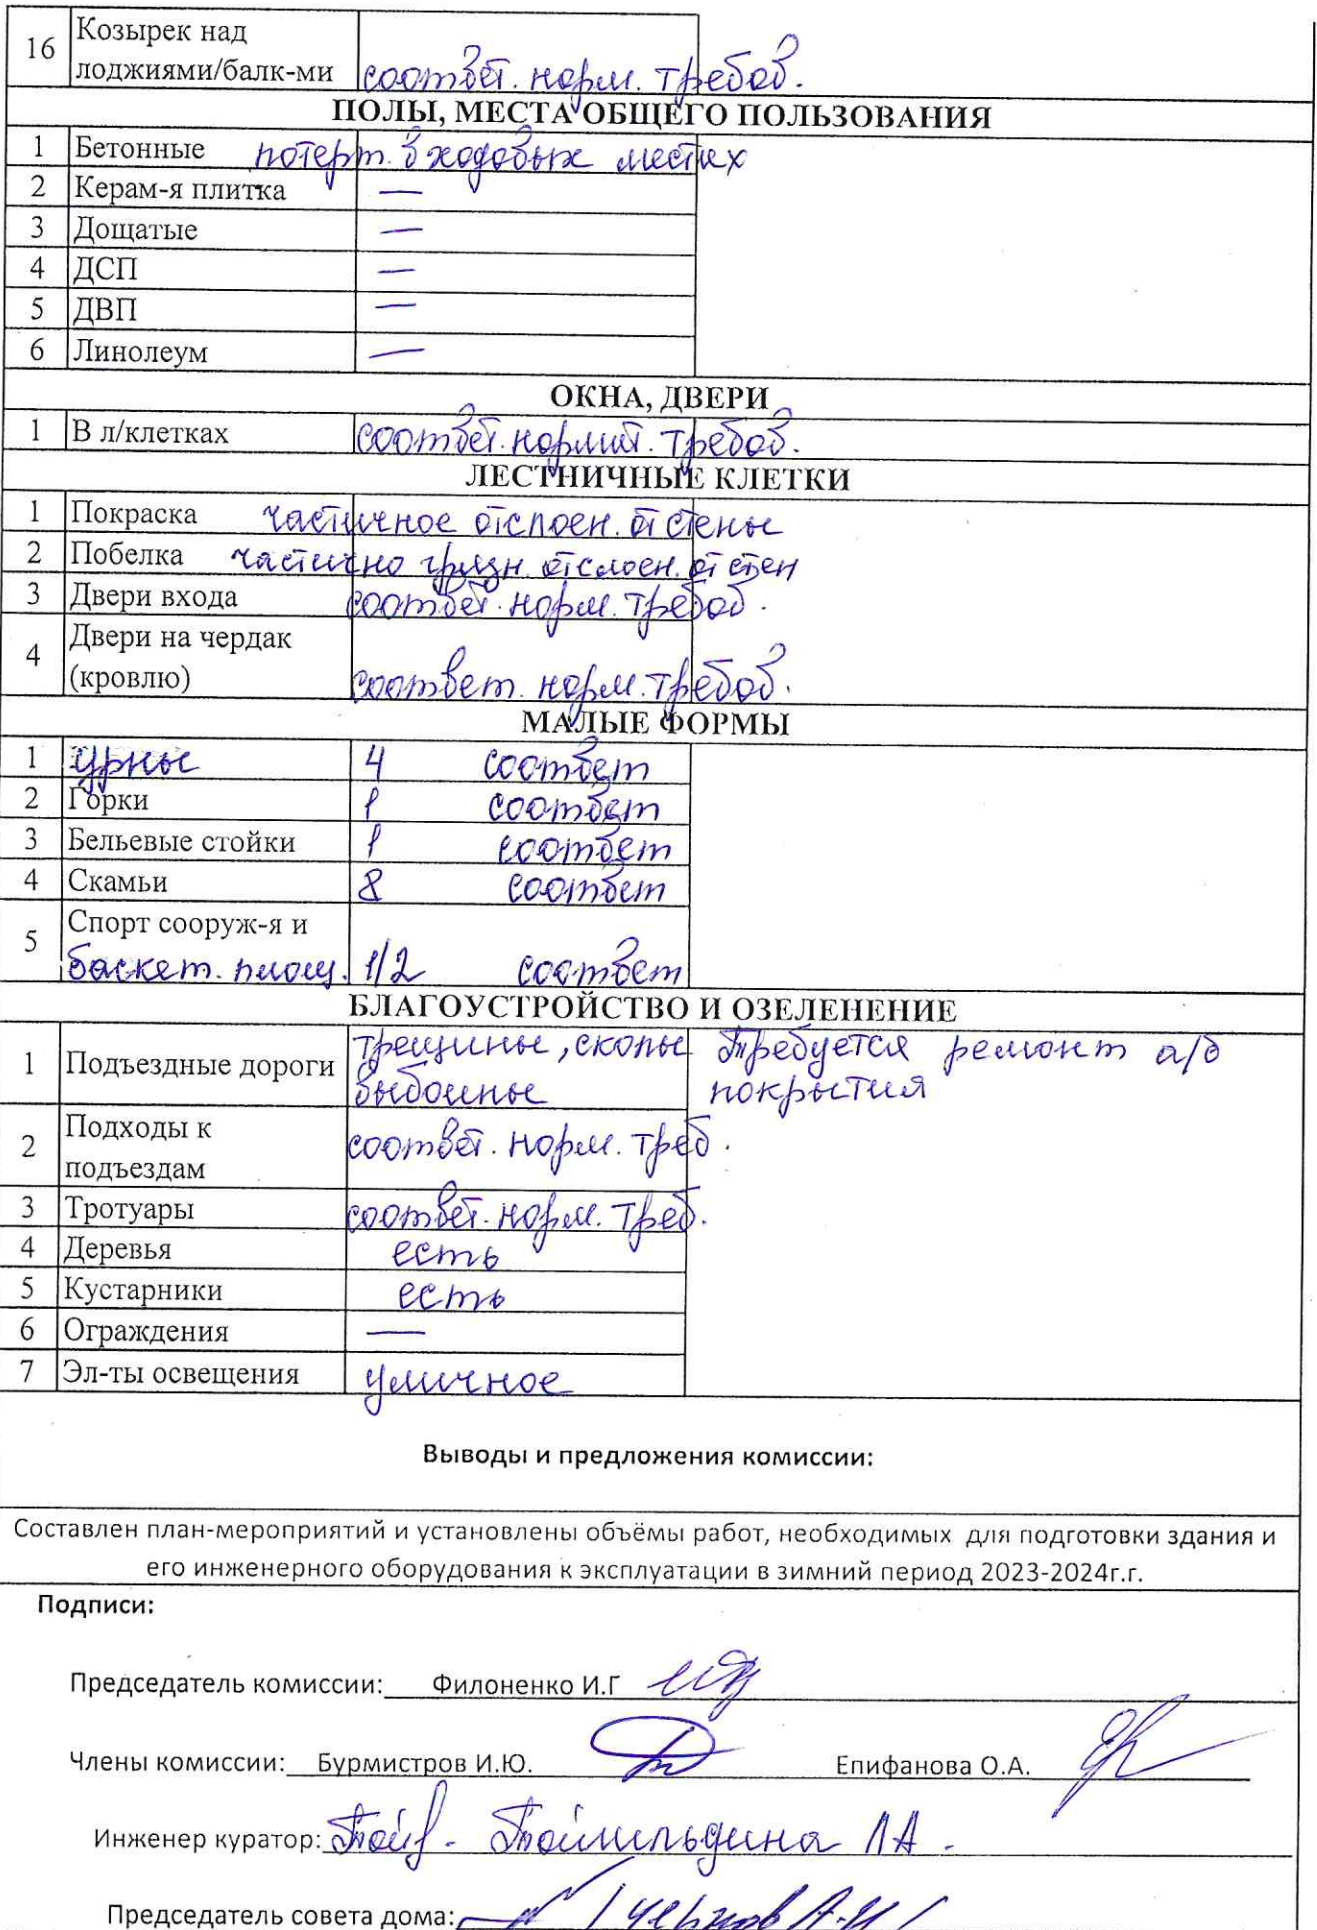 16 Козырек над
лоджиями/балк-ми соответ. норм. требов.
ПОЛЫ, МЕСТА ОБЩЕГО ПОЛЬЗОВАНИЯ
1 Бетонные потерт. в ходовых местах
2 Керам-я плитка —
3 Дощатые —
4 ДСП —
5 ДВП —
6 Линолеум —
ОКНА, ДВЕРИ
1 В л/клетках соответ. нормат. требов.
ЛЕСТНИЧНЫЕ КЛЕТКИ
1 Покраска частичное отслоен. от стены
2 Побелка частично грязн. отслоен. от стен
3 Двери входа соответ. норм. требов.
4 Двери на чердак
(кровлю) соответ. норм. требов.
МАЛЫЕ ФОРМЫ
1 урны 4 соответ
2 Горки 1 соответ
3 Бельевые стойки 1 соответ
4 Скамьи 8 соответ
5 Спорт сооруж-я и
баскет. площ. 1/2 соответ
БЛАГОУСТРОЙСТВО И ОЗЕЛЕНЕНИЕ
1 Подъездные дороги трещины, сколы выбоины Требуется ремонт а/б покрытия
2 Подходы к
подъездам соответ. норм. треб.
3 Тротуары соответ. норм. треб.
4 Деревья есть
5 Кустарники есть
6 Ограждения —
7 Эл-ты освещения уличное
Выводы и предложения комиссии:
Составлен план-мероприятий и установлены объёмы работ, необходимых для подготовки здания и
его инженерного оборудования к эксплуатации в зимний период 2023-2024г.г.
Подписи:
Председатель комиссии: Филоненко И.Г
Члены комиссии: Бурмистров И.Ю. Епифанова О.А.
Инженер куратор: Тойгильдина ЛА.
Председатель совета дома: / Чернов А.И /